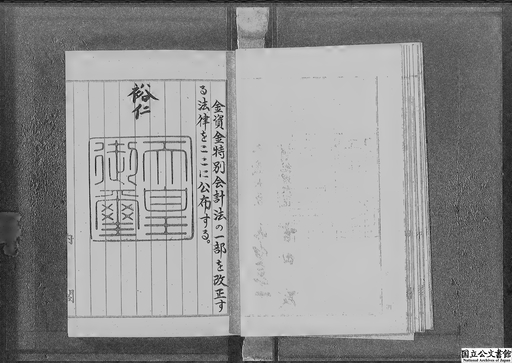 金資金特別会計法の一部を改正す
る法律をここに公布する。
裕仁
天皇
御璽
国立公文書館
National Archives of Japan